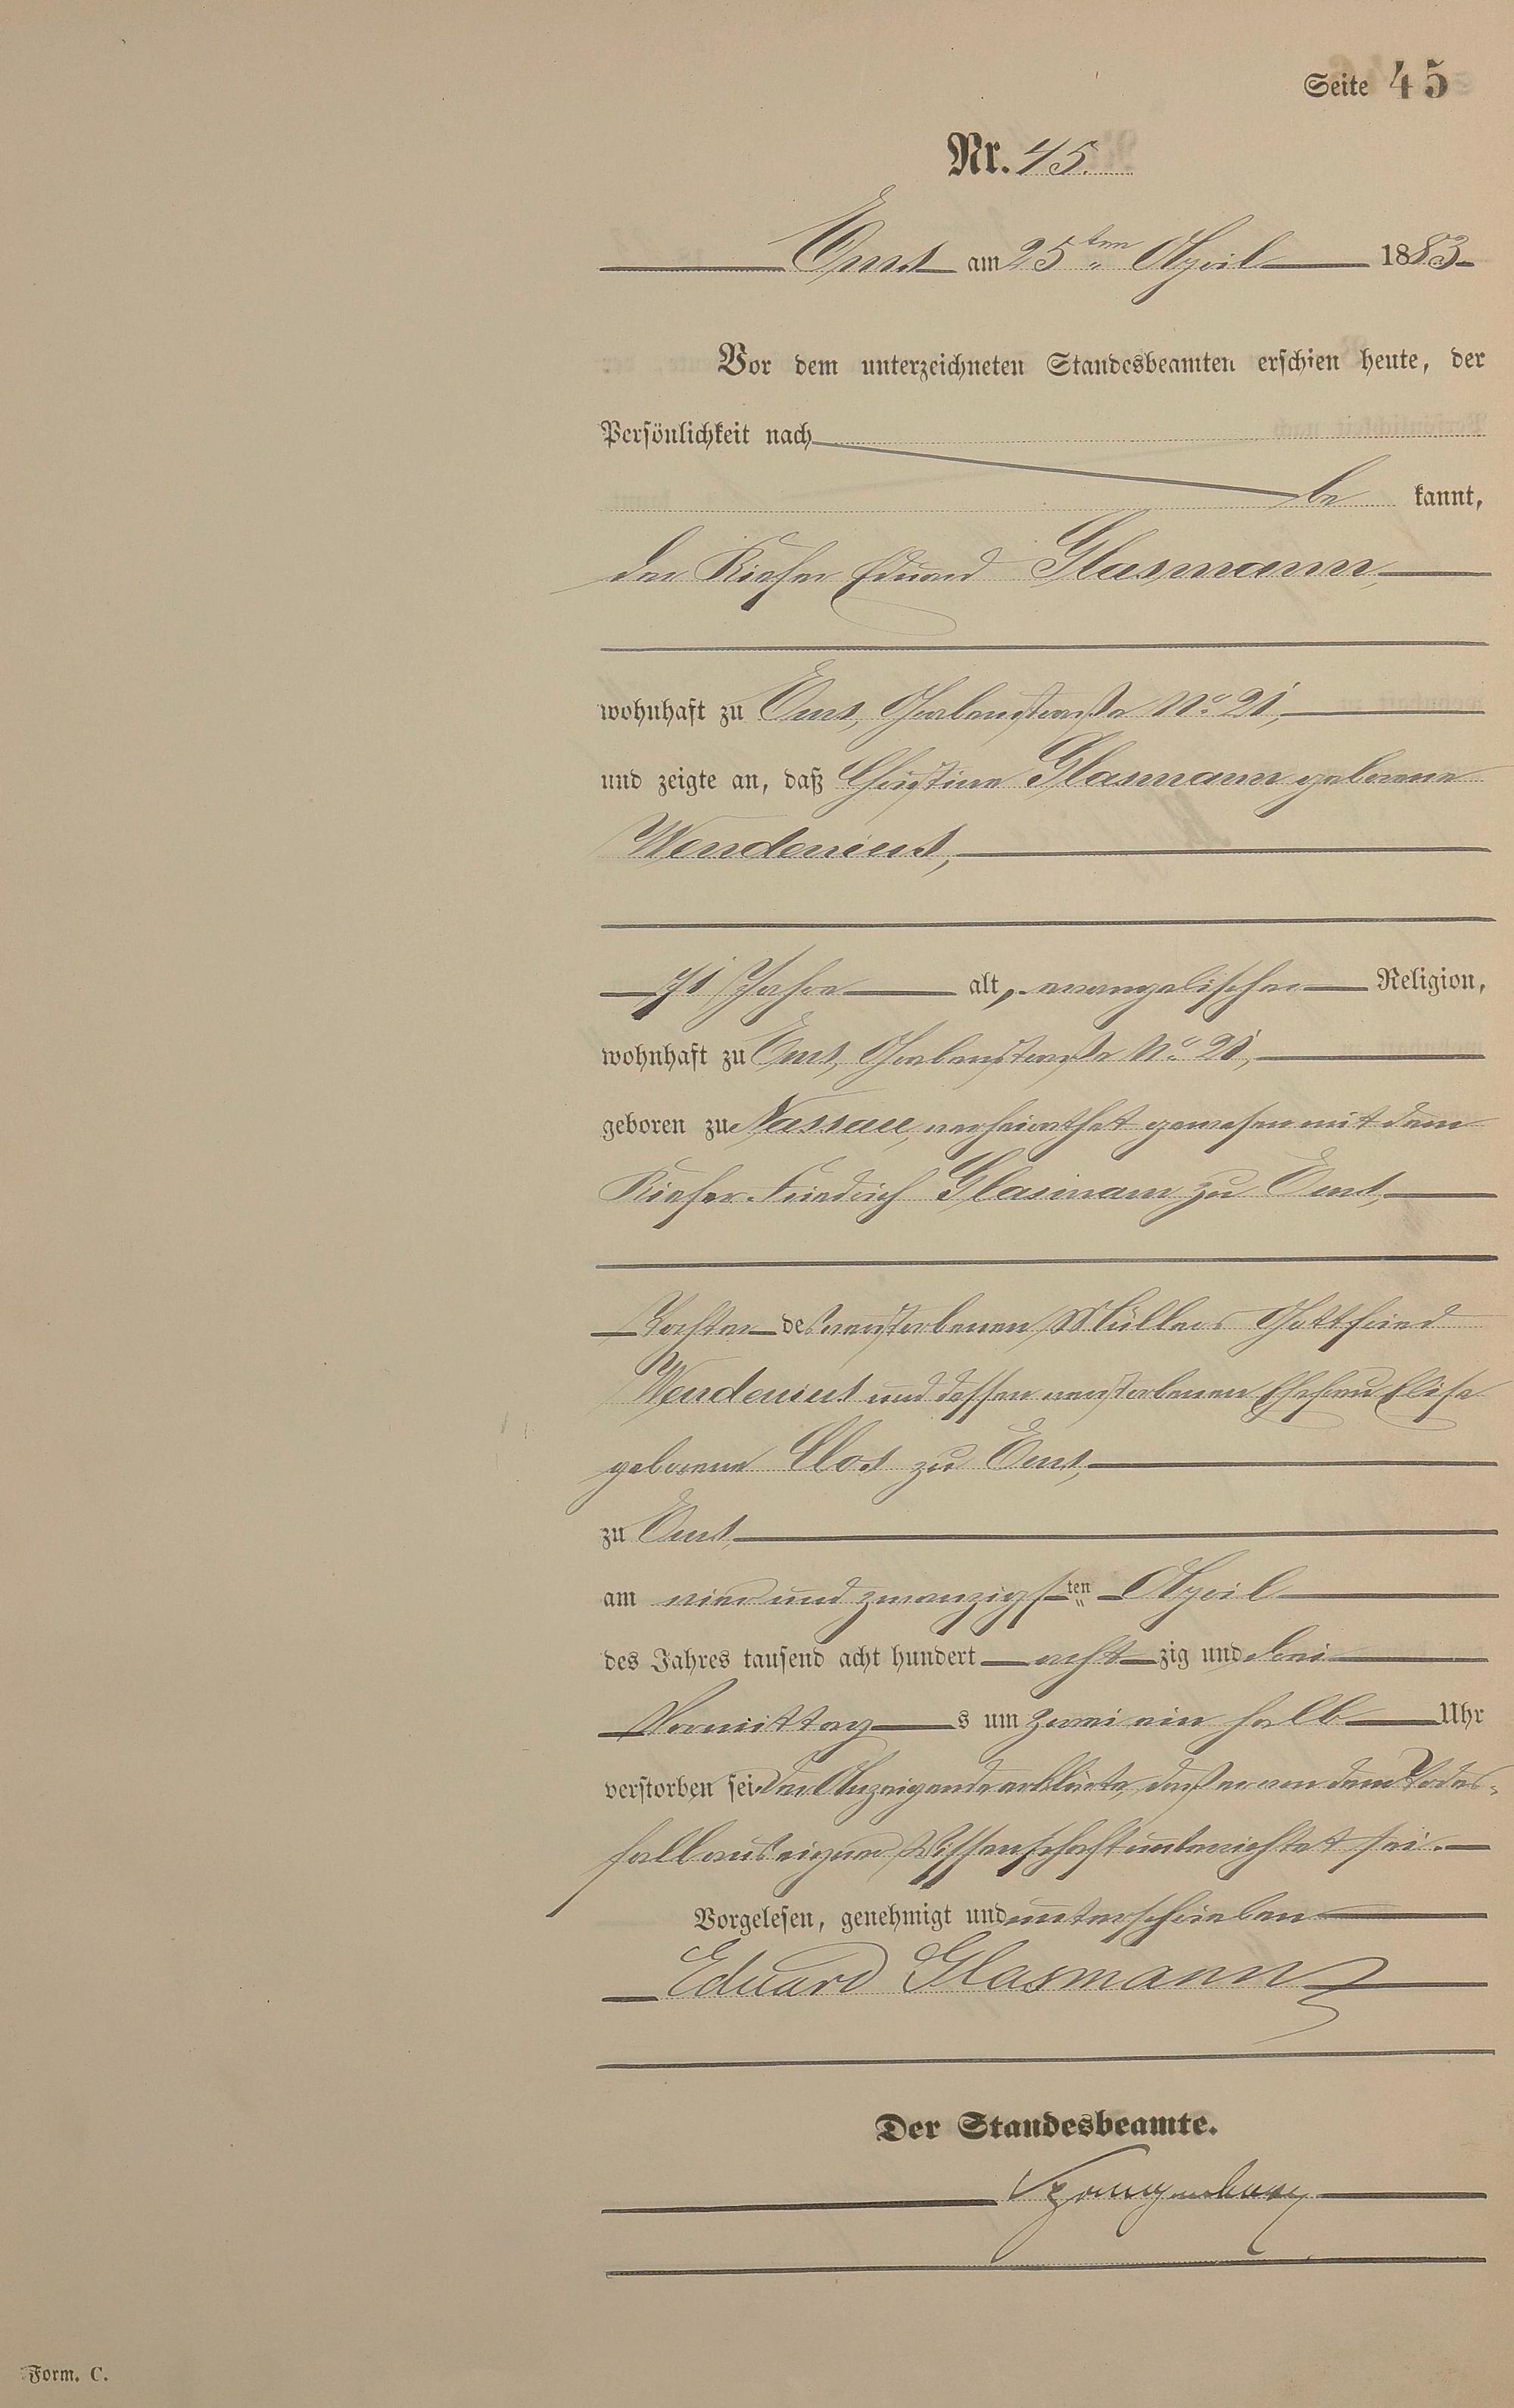 Seite 45
Nr. 45.
Ems am 25ten April 1883
Vor dem unterzeichneten Standesbeamten erschien heute, der
Persönlichkeit nach
be kannt,
der Kiefer Eduard Glasmann,
wohnhaft zu Ems, Grabenstraße No. 21,
und zeigte an, daß Christine Glasmann geborene
Wendenius,
71 Jahre alt, evangelischer Religion,
wohnhaft zu Ems, Grabenstraße No. 21,
geboren zu Nassau, verheirathet gewesen mit dem
Kiefer Friedrich Glasmann zu Ems,
Tochter des verstorbenen Müllers Gottfried
Wendenius und dessen verstorbenen Ehefrau Elise
geborene Clos zu Ems,
zu Ems
am vier und zwanzigsten April
des Jahres tausend acht hundert acht zig und drei
Vormittag s um zwei ein halb Uhr
verstorben sei. Der Anzeigende erklärte, daß er von dem Todes-
fall aus eigner Wissenschaft unterrichtet sei.
Vorgelesen, genehmigt und unterschrieben
Eduard Glasmann
Der Standesbeamte.
Form. C.